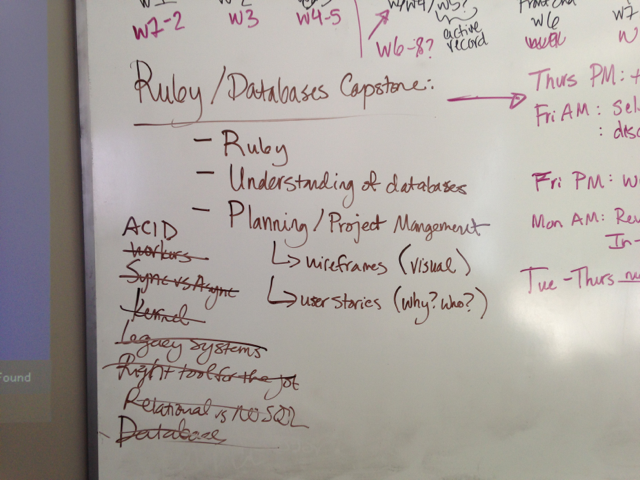 W7-2
W3
W4-5
W6-8?
active
record
W6
Ruby/Databases Capstone:
- Ruby
- Understanding of databases
- Planning/Project Mangement
wireframes (visual)
user stories (why? who?)
ACID
workers
Sync vs Async
Kernel
Legacy Systems
Right tool for the job
Relational vs NO SQL
Database
Thurs PM:
Fri AM:
Fri PM:
Mon AM:
In-
Tue-Thurs
found